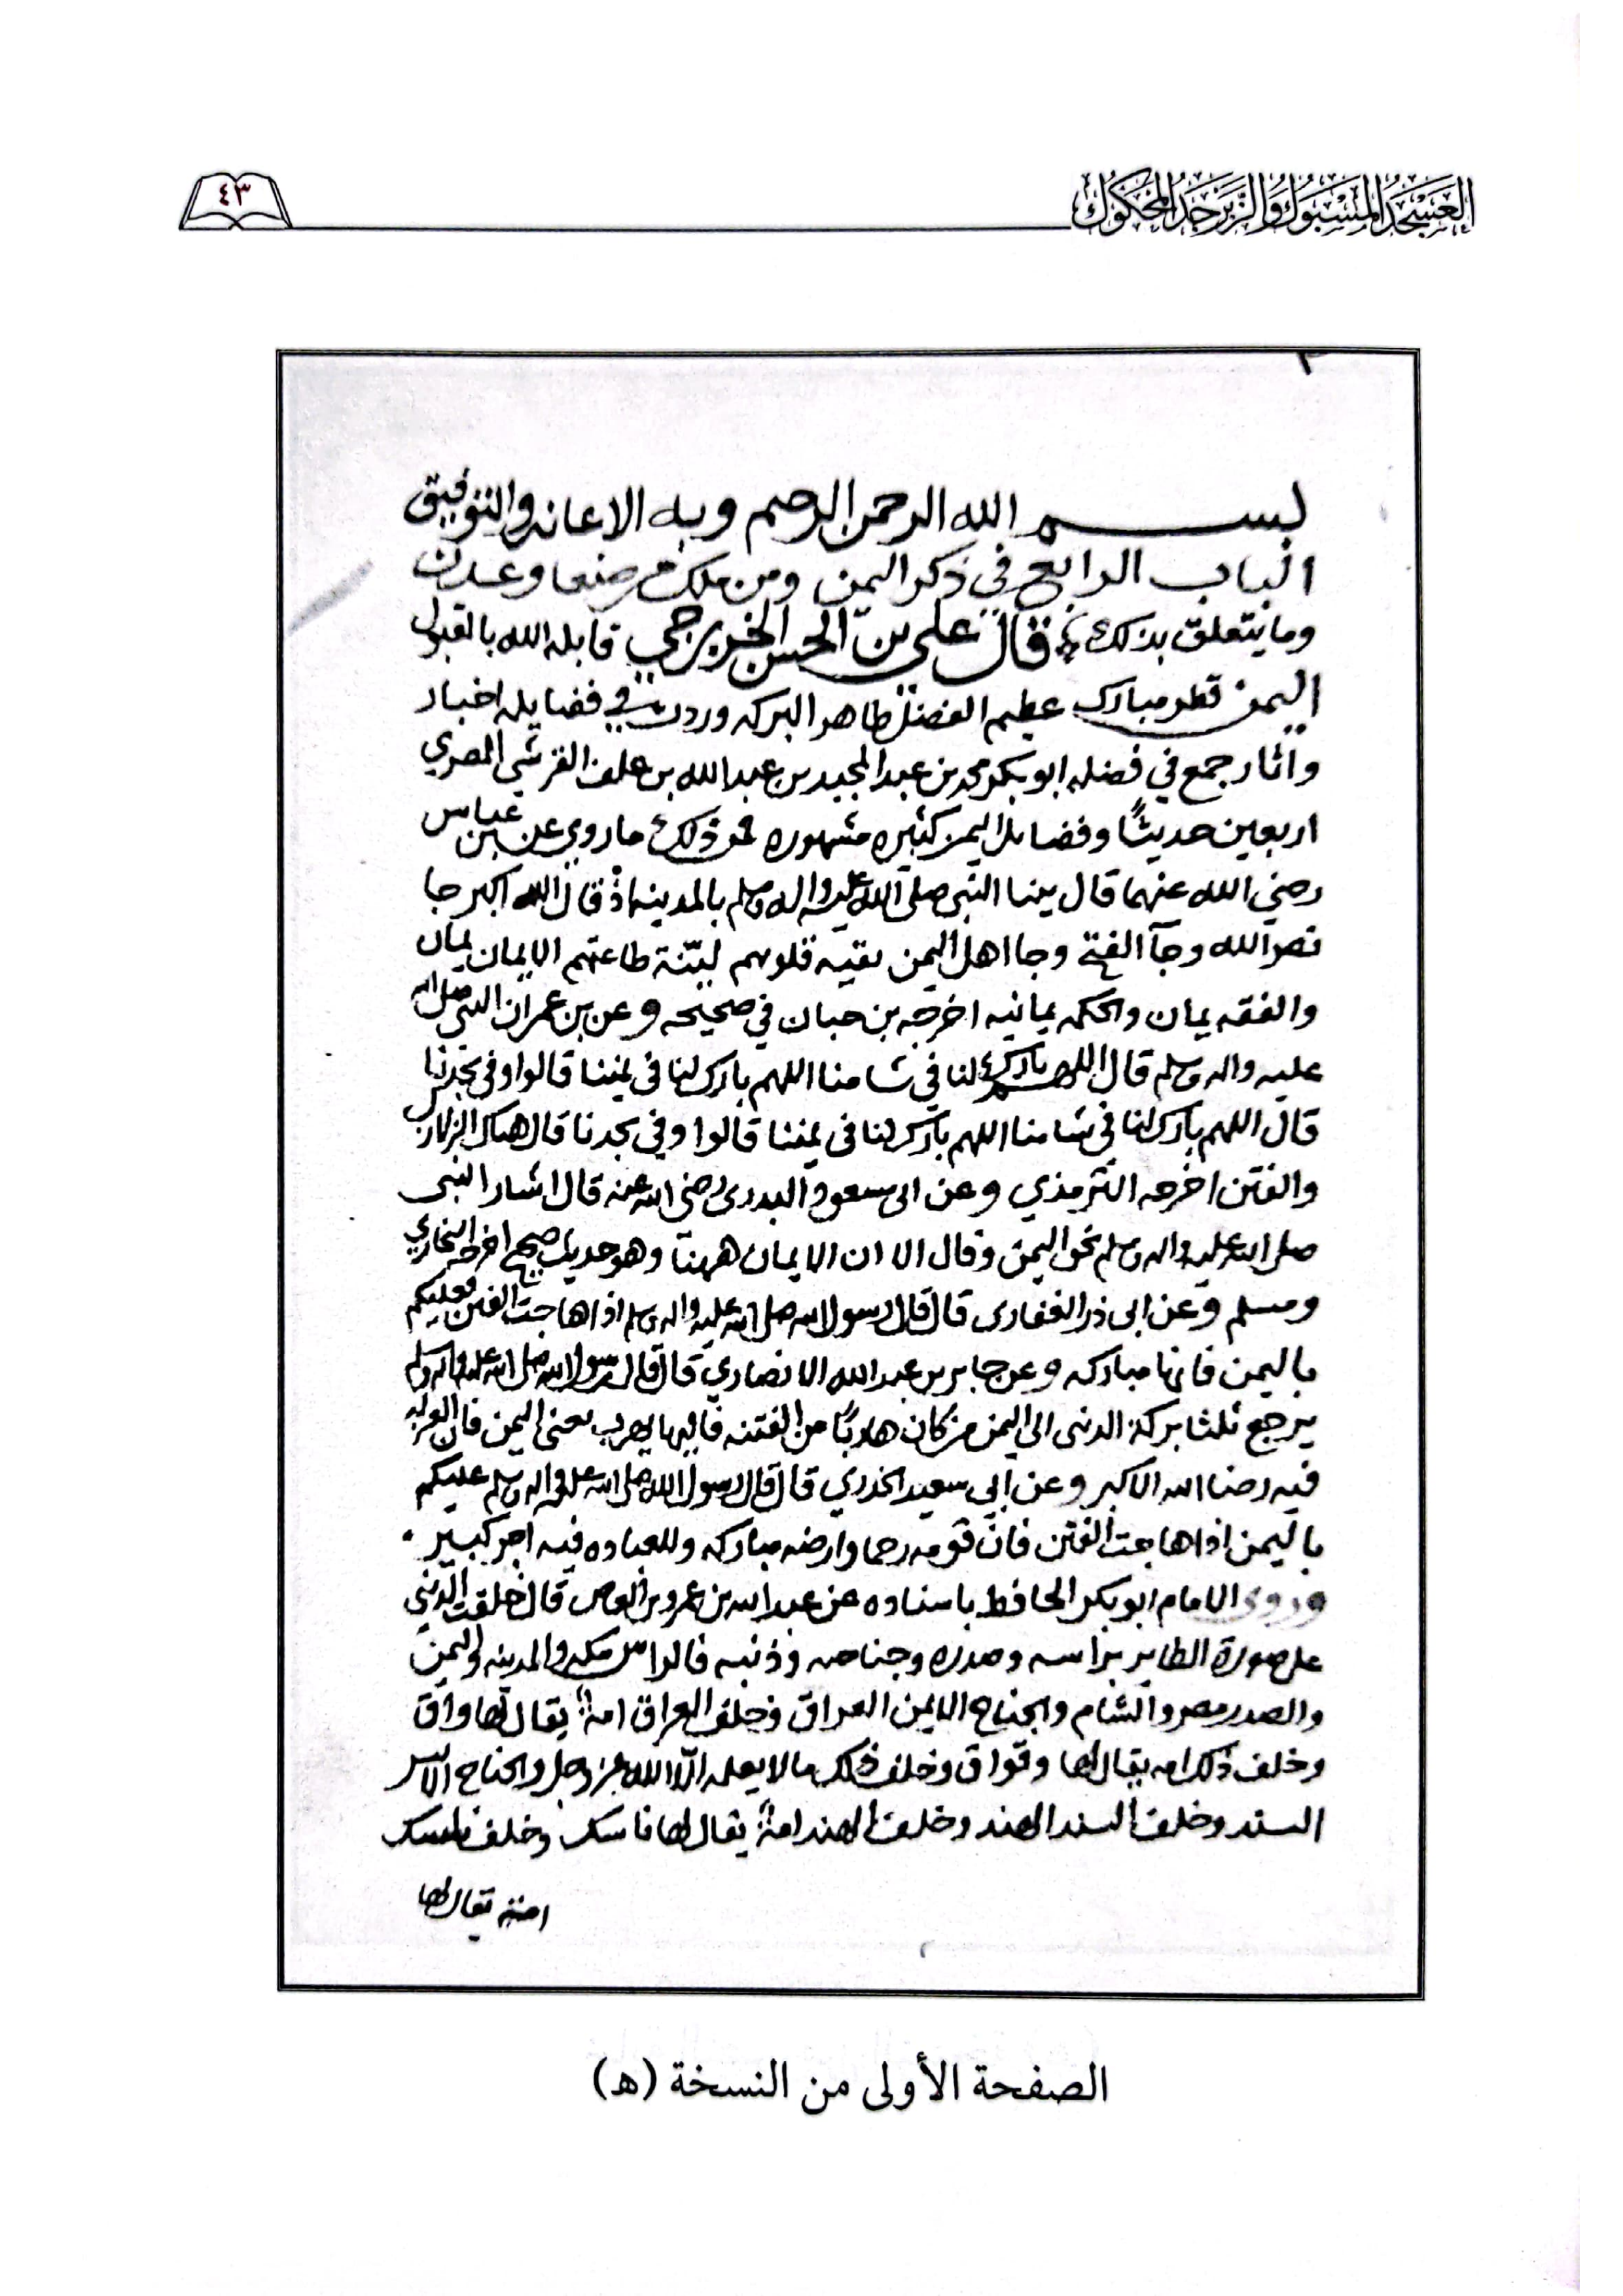 العسجد المسبوك والزبرجد المحكوك
٤٣
بسم الله الرحمن الرحيم وبه الاعانه والتوفيق
الباب الرابع في ذكر اليمن ومن ملك من صنعا وعدن
وما يتعلق بذلك قال علي بن الحسن الخزرجي قابله الله بالقبول
اليمن قطر مبارك عظيم الفضل ظاهر البركه وردت في فضايله اخبار
واثار جمع في فضله ابو بكر محمد بن عبد المجيد بن عبد الله بن خلف القرشي المصري
اربعين حديثًا وفضايل اليمن كثيره مشهوره فمن ذلك ما روي عن بن عباس
رضي الله عنهما قال بينا النبي صلى الله عليه واله وسلم بالمدينه اذ قال الله اكبر جا
نصر الله وجآ الفتح وجا اهل اليمن نقيه قلوبهم ليّنة طاعتهم الايمان يمان
والفقه يمان والحكمه يمانيه اخرجه بن حبان في صحيحه وعن بن عمر ان النبي صلى الله
عليه واله وسلم قال اللهم بارك لنا في شامنا اللهم بارك لنا في يمننا قالوا وفي نجدنا
قال اللهم بارك لنا في شامنا اللهم بارك لنا في يمننا قالوا وفي نجدنا قال هناك الزلازل
والفتن اخرجه الترمذي وعن ابى مسعود البدرى رضى الله عنه قال اشار النبى
صلى الله عليه واله وسلم نحو اليمن وقال الا ان الايمان ههنا وهو حديث صحيح اخرجه البخاري
ومسلم وعن ابى ذر الغفارى قال قال رسول الله صلى الله عليه واله وسلم اذا هاجت الفتن فعليكم
باليمن فانها مباركه وعن جابر بن عبد الله الانصاري قال قال رسول الله صلى الله عليه واله وسلم
يرجع ثلثا بركة الدنى الى اليمن من كان هاربًا من الفتنه فاليها يهرب يعنى اليمن فان العباده
فيه رضا الله الاكبر وعن ابي سعيد الخدري قال قال رسول الله صلى الله عليه واله وسلم عليكم
باليمن اذا هاجت الفتن فان قومه رحما وارضه مباركه وللعباده فيه اجر كبير
وروى الامام ابو بكر الحافظ باسناده عن عبد الله بن عمرو بن العاص قال خلقت الدني
على صورة الطاير براسه وصدره وجناحه وذنبه فالراس مكه والمدينه واليمن
والصدر مصر والشام والجناح الايمن العراق وخلف العراق امة يقال لها واق
وخلف ذلك امه يقال لها وقواق وخلف ذلك ما لا يعلمه الّا الله عز وجل والجناح الايسر
السند وخلف السند الهند وخلف الهند امة يقال لها ناسك وخلف ناسك
امة يقال لها
الصفحة الأولى من النسخة (هـ)